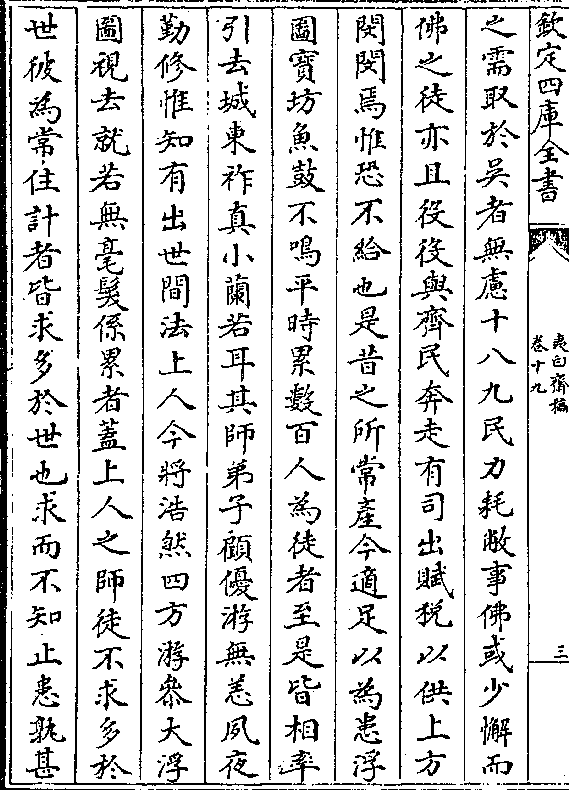 欽定四庫全書
夷白齋稿
卷十九
三
之需取於吳者無慮十八九民力耗敝事佛或少懈而
佛之徒亦且役役與齊民奔走有司出賦稅以供上方
閔閔焉惟恐不給也是昔之所常產今適足以為患浮
圖寳坊魚鼓不鳴平時累數百人為徒者至是皆相率
引去城東祚真小蘭若耳其師弟子顧優游無恙夙夜
勤修惟知有出世間法上人今將浩然四方游叅大浮
圖視去就若無毫髮係累者蓋上人之師徒不求多於
世彼為常住計者皆求多於世也求而不知止患孰甚